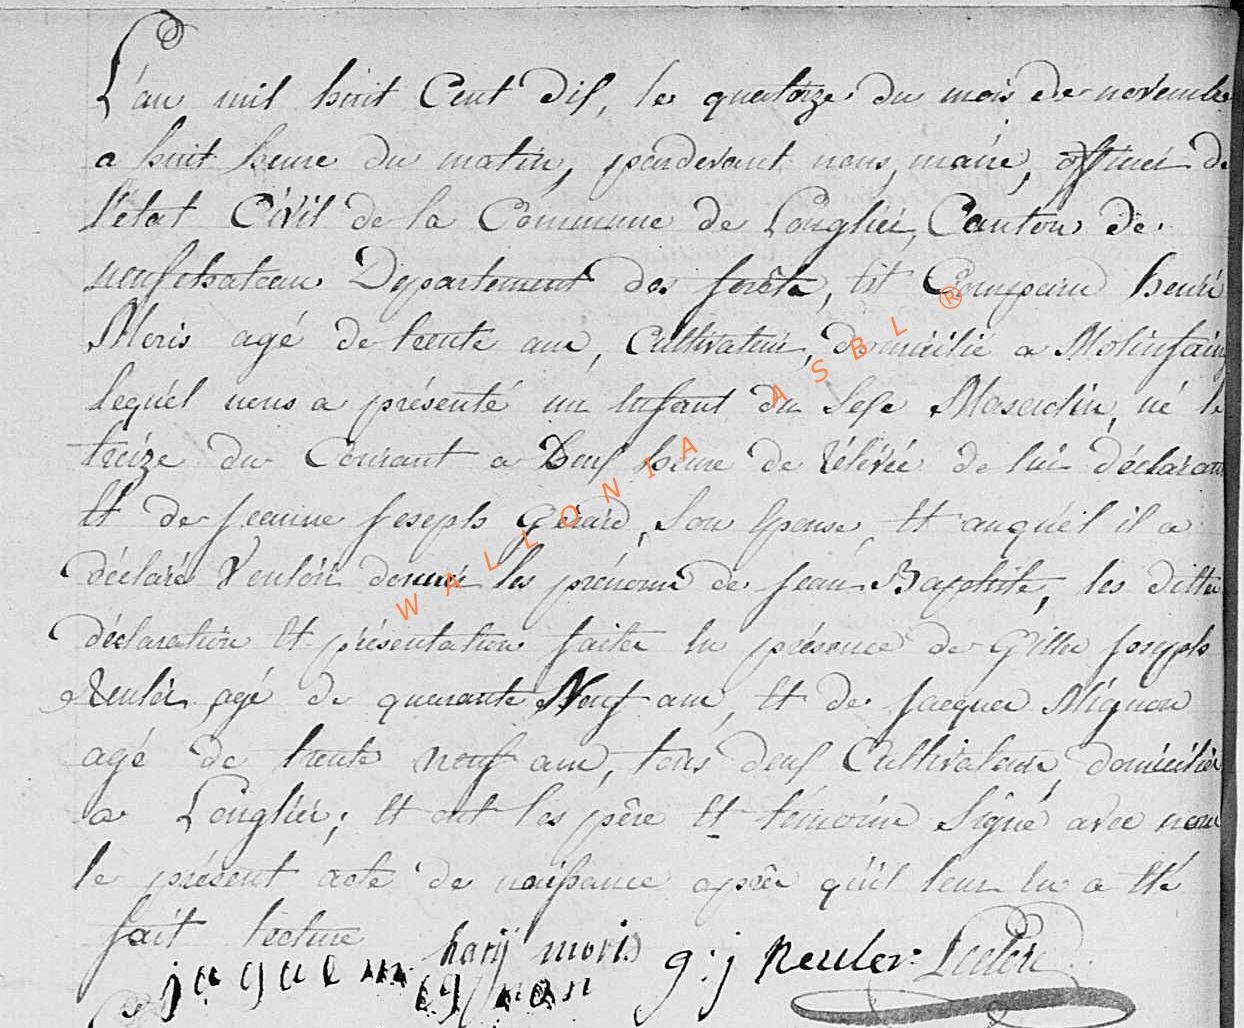 L'an mil huit Cent dix, le quatorze du mois de novembre
a huit heure du matin, pardevant nous, maire, officier de
l'état Civil de la Commune de Longlier, Canton de
neufchateau Departement des forêts, est Comparu henri
Moris agé de trente ans, Cultivateur, domicilié a Molinfaing
lequél nous a présenté un Enfant du Sexe Masculin, né le
treize du Courant a Deux heure de rélévée de lui déclarant
Et de jeanne joseph Gérard, son Epouse, Et auquél il a
déclaré vouloir donner les prénoms de jean Baptiste, les dittes
déclaration Et présentation faites En présence de Gilles joseph
Reuler agé de quarante Neuf ans, Et de jacques Mignon
agé de trente neuf ans, tous deux Cultivateurs, domiciliés
a Longlier; Et ont les père Et témoins Signé avec nous
le présent acte de naissance après qu'il leur En a Eté
fait lecture
harij moris g:j Reuler Leclere
jaquem
ignon
WALLONIA ASBL ®